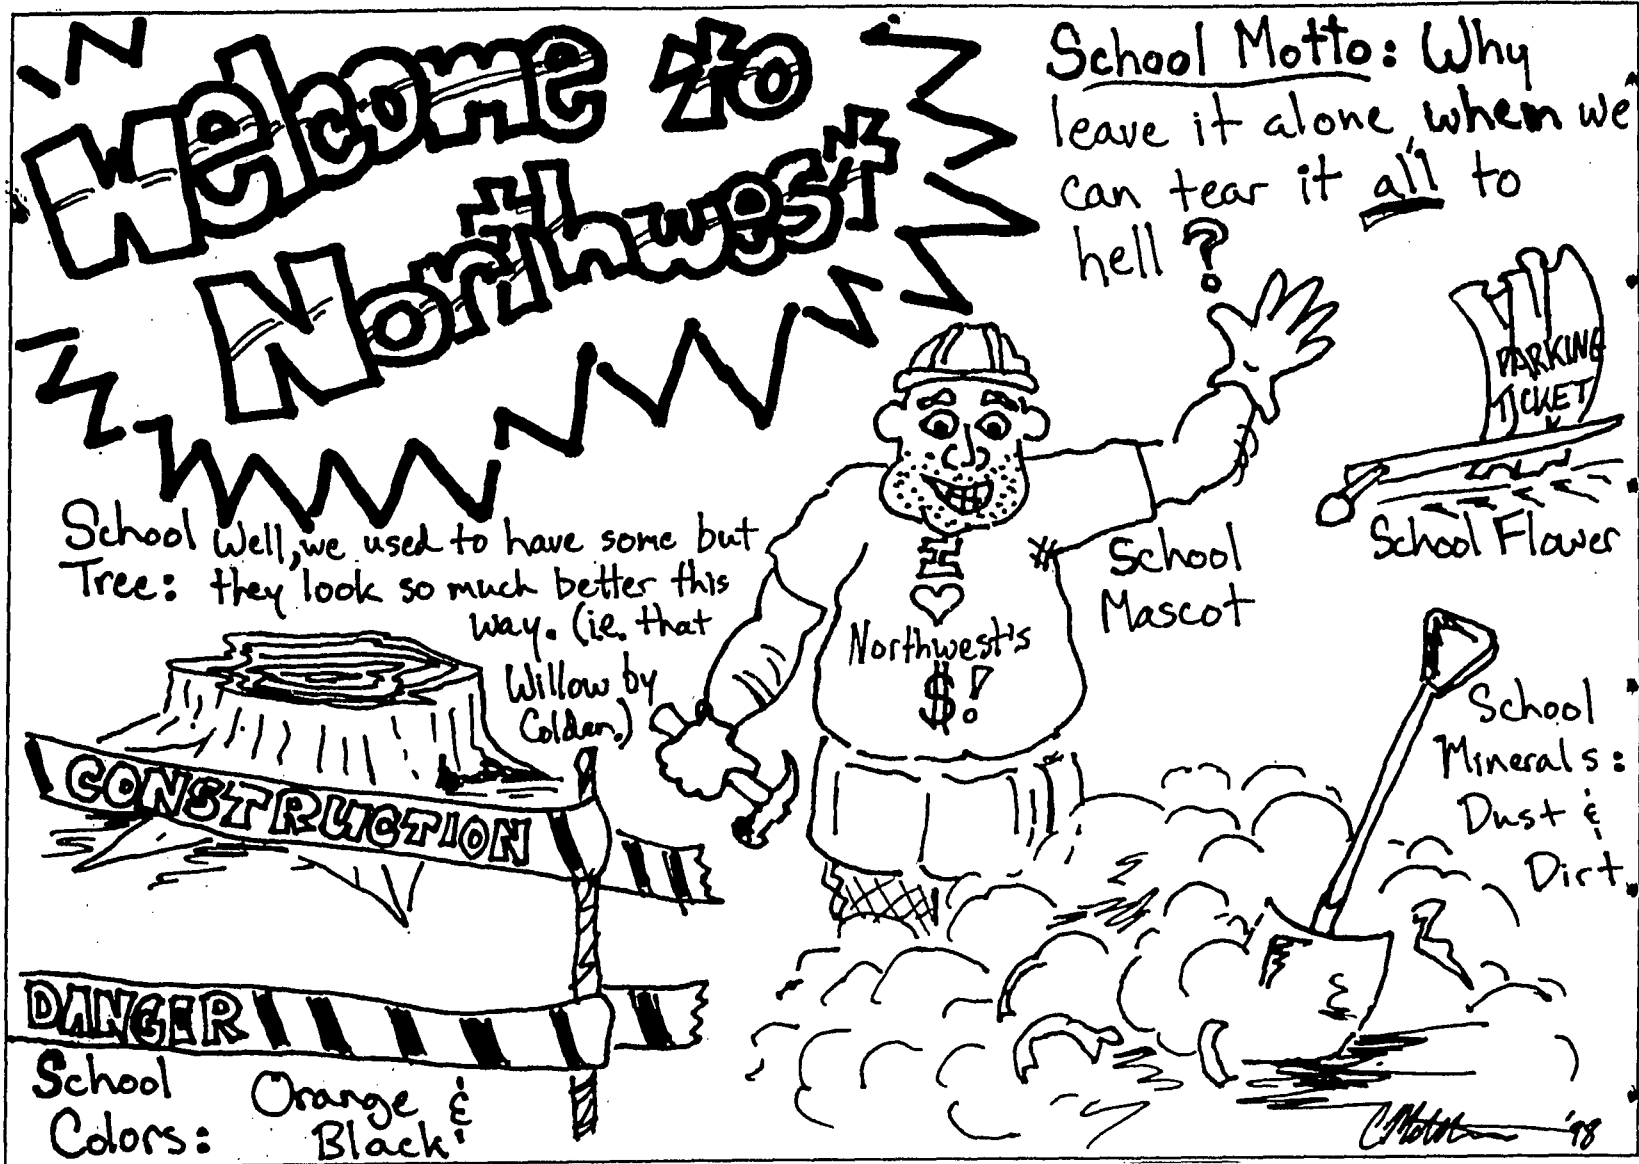 Welcome to
Northwest
School Motto: Why
leave it alone, when we
can tear it all to
hell?
PARKING
TICKET
School Flower
School Tree: Well, we used to have some but
they look so much better this
way. (i.e. that
Willow by
Colden.)
School
Mascot
I
♡
Northwest's
$!
School
Minerals:
Dust &
Dirt
CONSTRUCTION
DANGER
School
Colors:
Orange &
Black
'98